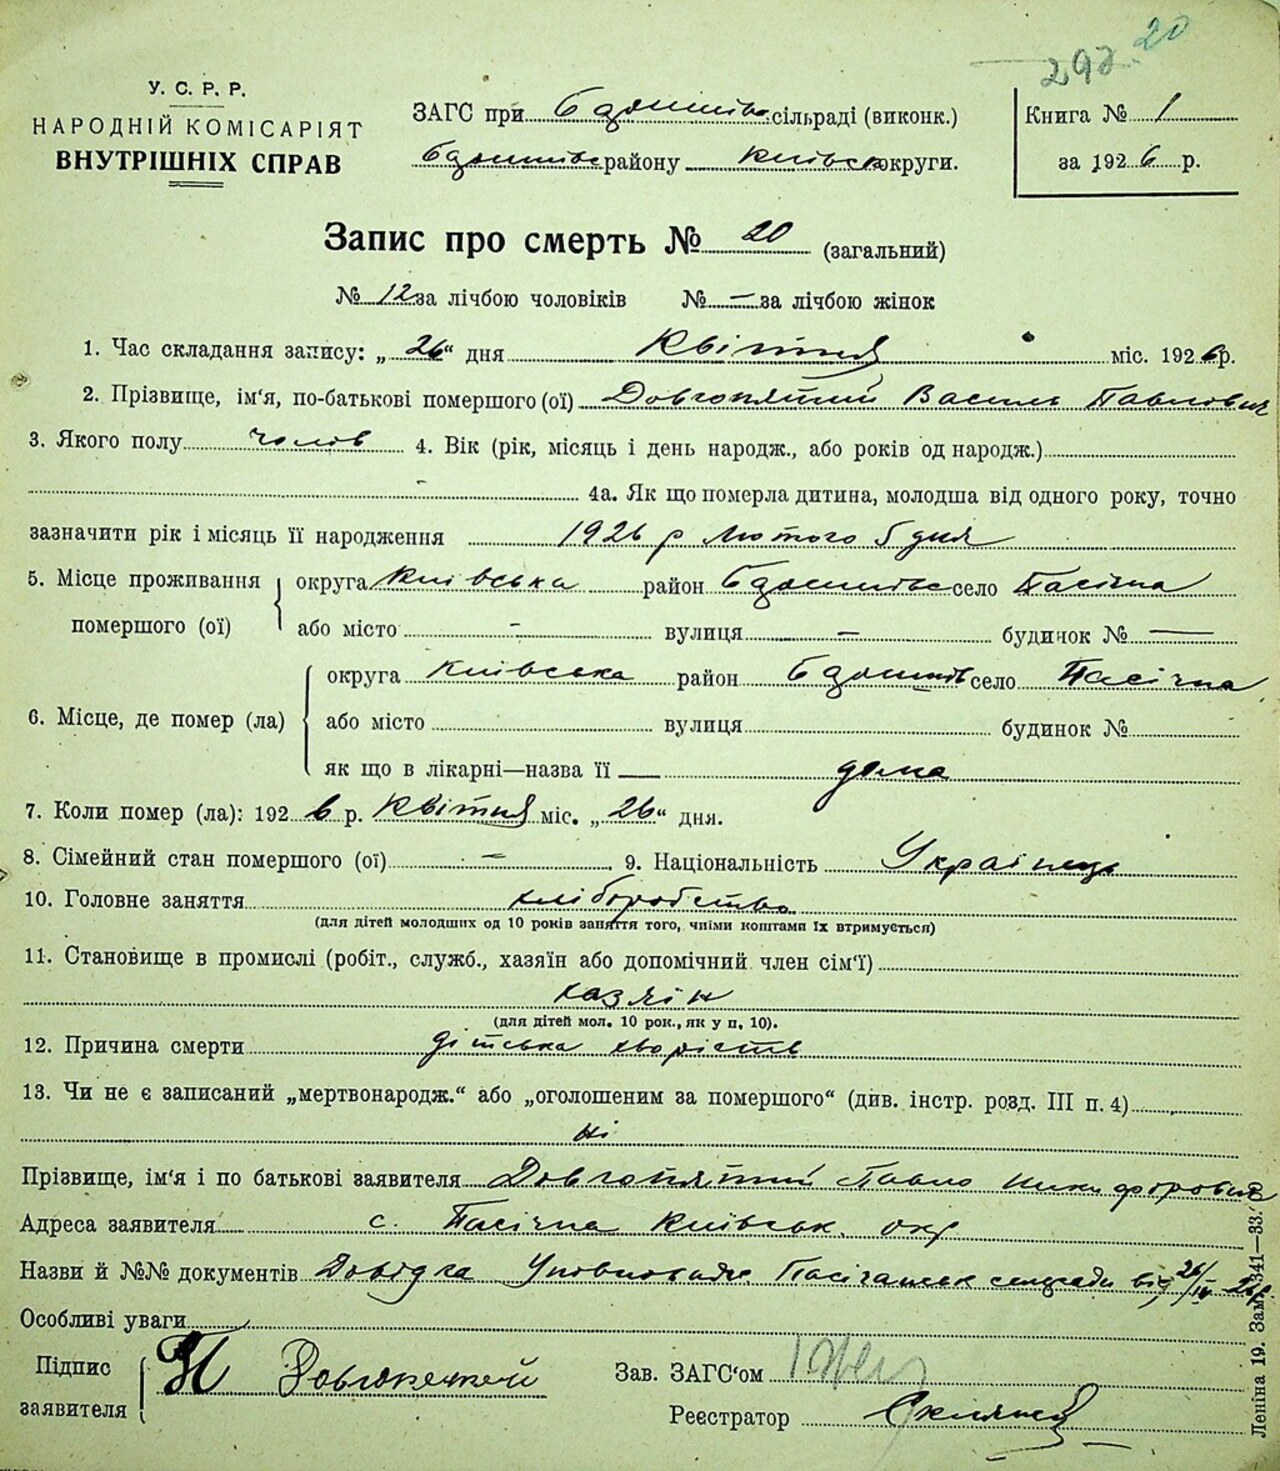 292 20
У. С. Р. Р.
НАРОДНІЙ КОМІСАРІЯТ
ВНУТРІШНІХ СПРАВ
ЗАГС при сільраді (виконк.)
району Київськ округи.
Книга № 1
за 1926 р.
Запис про смерть № 20 (загальний)
№ 12 за лічбою чоловіків № — за лічбою жінок
1. Час складання запису: „26“ дня Квітня міс. 1926 р.
2. Прізвище, ім‘я, по-батькові помершого (ої) Довгопятий Василь Павлович
3. Якого полу чолов 4. Вік (рік, місяць і день народж., або років од народж.)
- 4а. Як що померла дитина, молодша від одного року, точно
зазначити рік і місяць її народження 1926 р Лютого 5 дня
5. Місце проживання помершого (ої) округа Київська район село Пасічна
або місто - вулиця — будинок № —
6. Місце, де помер (ла) округа Київська район село Пасічна
або місто вулиця будинок №
як що в лікарні—назва її — дома
7. Коли помер (ла): 1926 р. Квітня міс. „26“ дня.
8. Сімейний стан помершого (ої) — 9. Національність Украінець
10. Головне заняття хліборобство
(для дітей молодших од 10 років заняття того, чиїми коштами їх втримується)
11. Становище в промислі (робіт., служб., хазяїн або допомічний член сім‘ї)
хазяін
(для дітей мол. 10 рок., як у п. 10).
12. Причина смерти дітська хворість
13. Чи не є записаний „мертвонародж.“ або „оголошеним за помершого“ (див. інстр. розд. III п. 4)
ні
Прізвище, ім‘я і по батькові заявителя Довгопятий Павло Никифорович
Адреса заявителя с. Пасічна Київськ. окр
Назви й №№ документів Довідка сельради від 26/IV 26 р
Особливі уваги
Підпис заявителя
Зав. ЗАГС‘ом
Реєстратор
Леніна 19. Зам. 341—83.